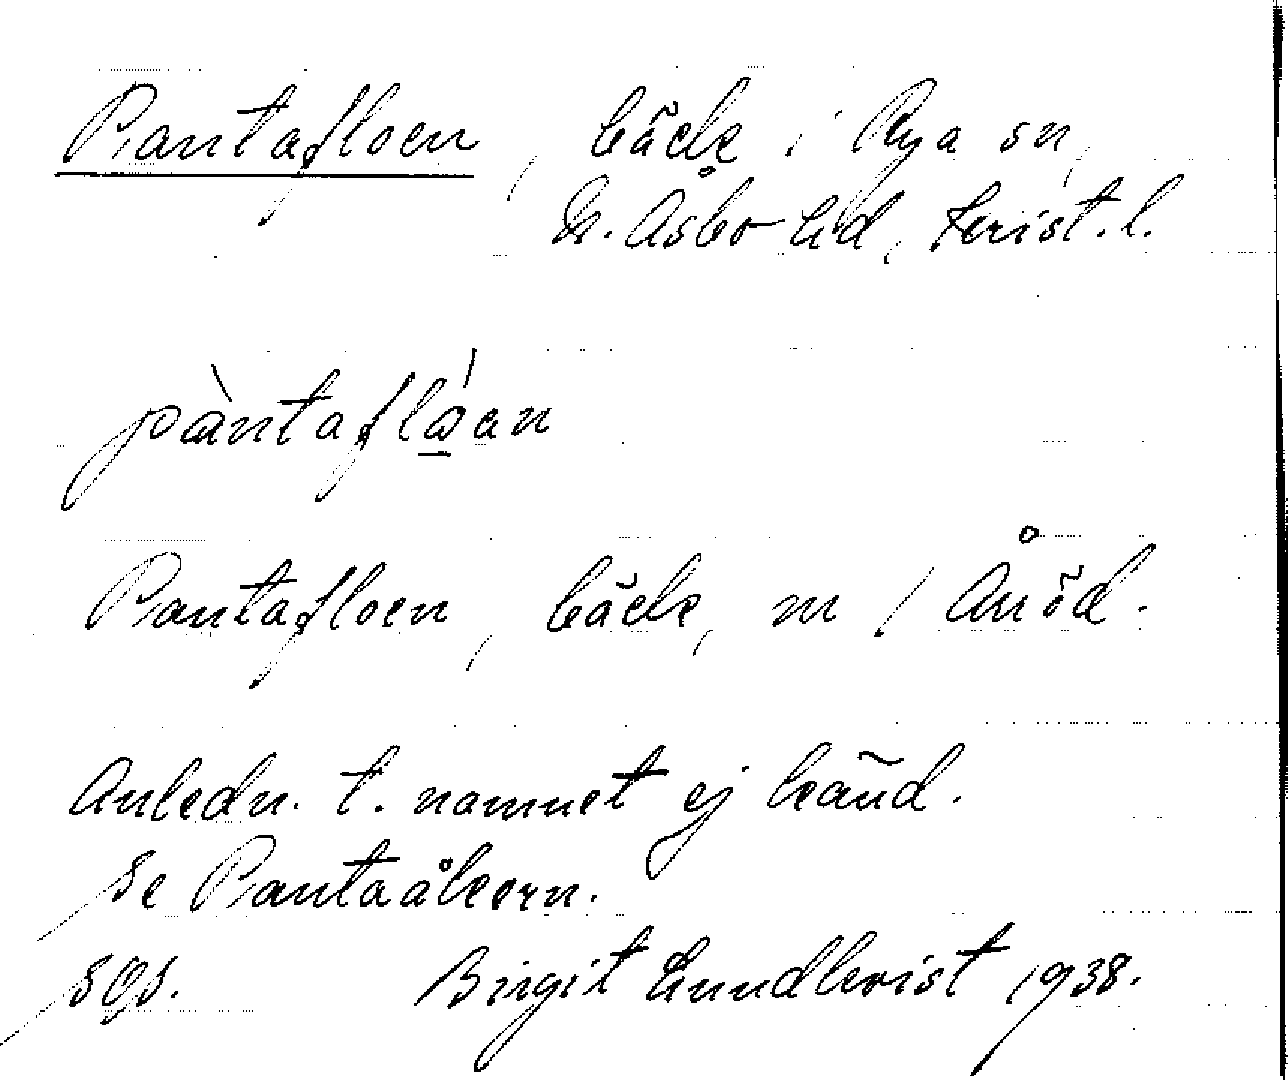 Pantafloen, bäck i Rya sn,
N. Åsbo hd, Krist. l.
pàntaflǻən
Pantafloen, bäck, m / Anöd.
Anledn. t. namnet ej känd.
Se Pantaåkern.
sgs. Birgit Lundkvist 1938.